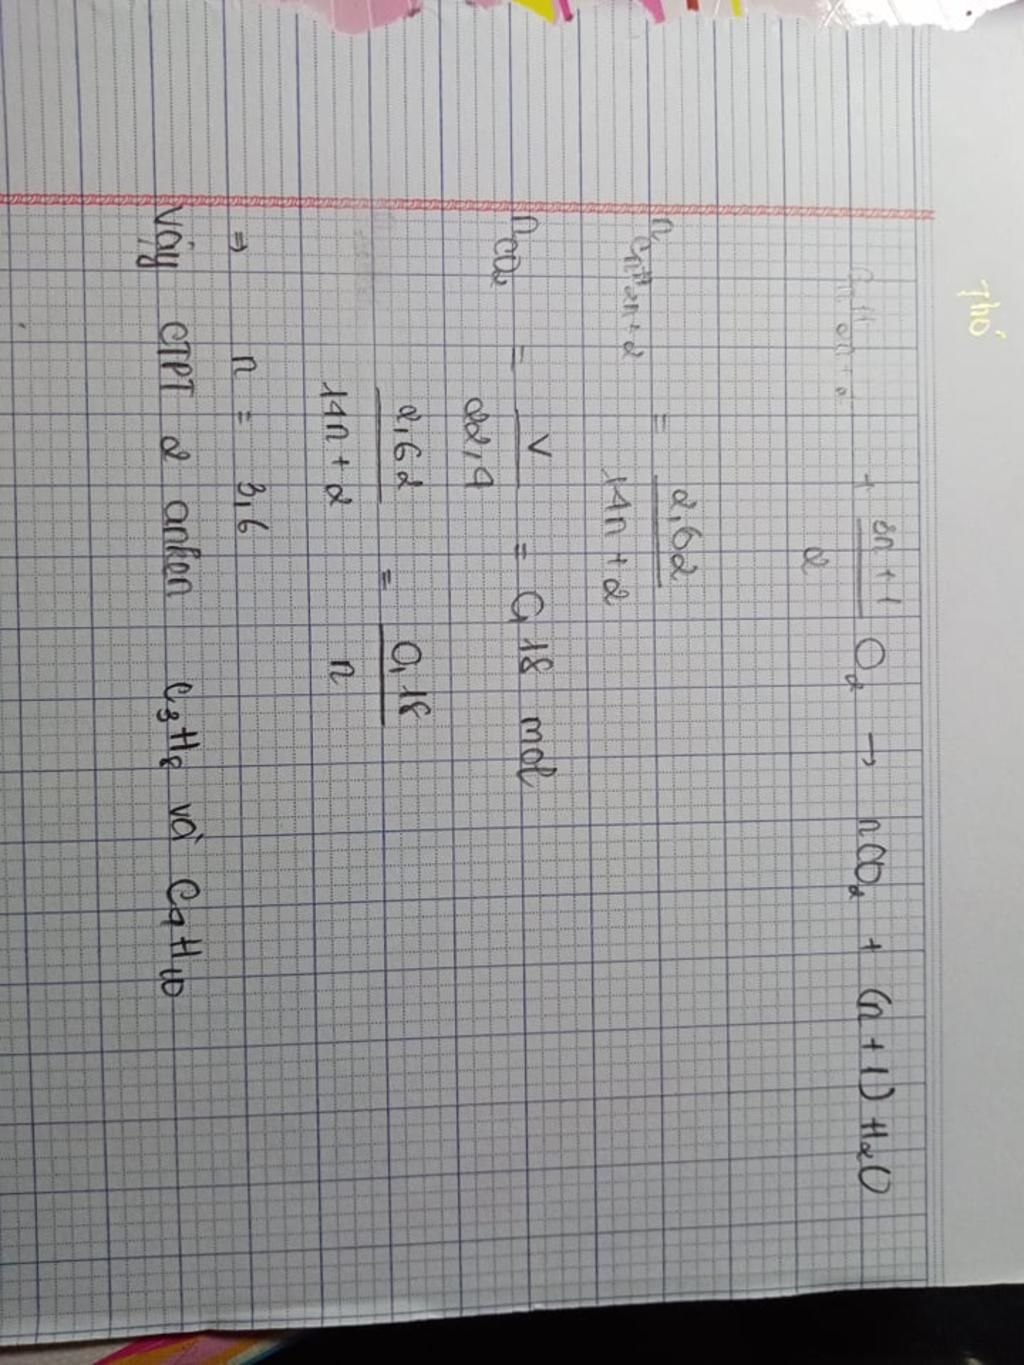 Thứ
CnH2n+2 + 3n+1/2 O2 → nCO2 + (n+1) H2O
nCnH2n+2 = 2,62/14n+2
nCO2 = V/22,4 = 0,18 mol
2,62/14n+2 = 0,18/n
⇒ n = 3,6
Vậy CTPT 2 anken C3H8 và C4H10